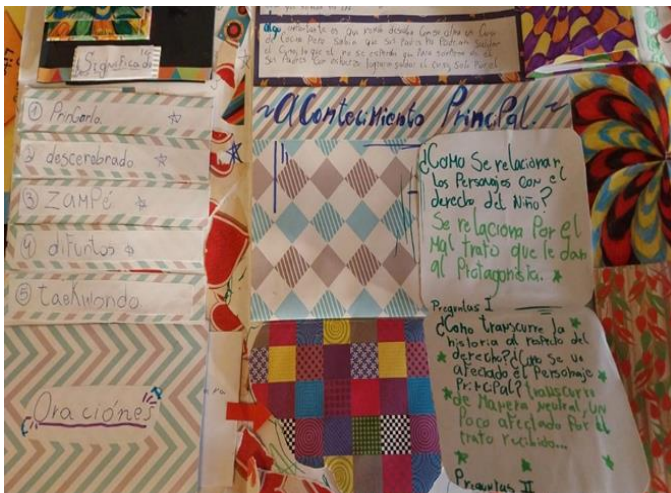 Significado
① Pringarla
② descerebrado
③ Zampé
④ difuntos
⑤ taekwondo
Oraciónes
algo importante es que nino desaba
sus Padres con esfuerzo lograron saldar el
~Acontecimiento Principal.~
¿Como Se relacionan
los Personajes con el
derecho del Niño?
Se relaciona Por el
Mal trato que le dan
al Protagonista.
Preguntas I
¿Como transcurre la
historia al respeto del
derecho? ¿Como Se ve
afectado el Personaje
Principal? transcurre
de Manera neutral, un
Poco afectado Por el
trato recibido...
Preguntas II